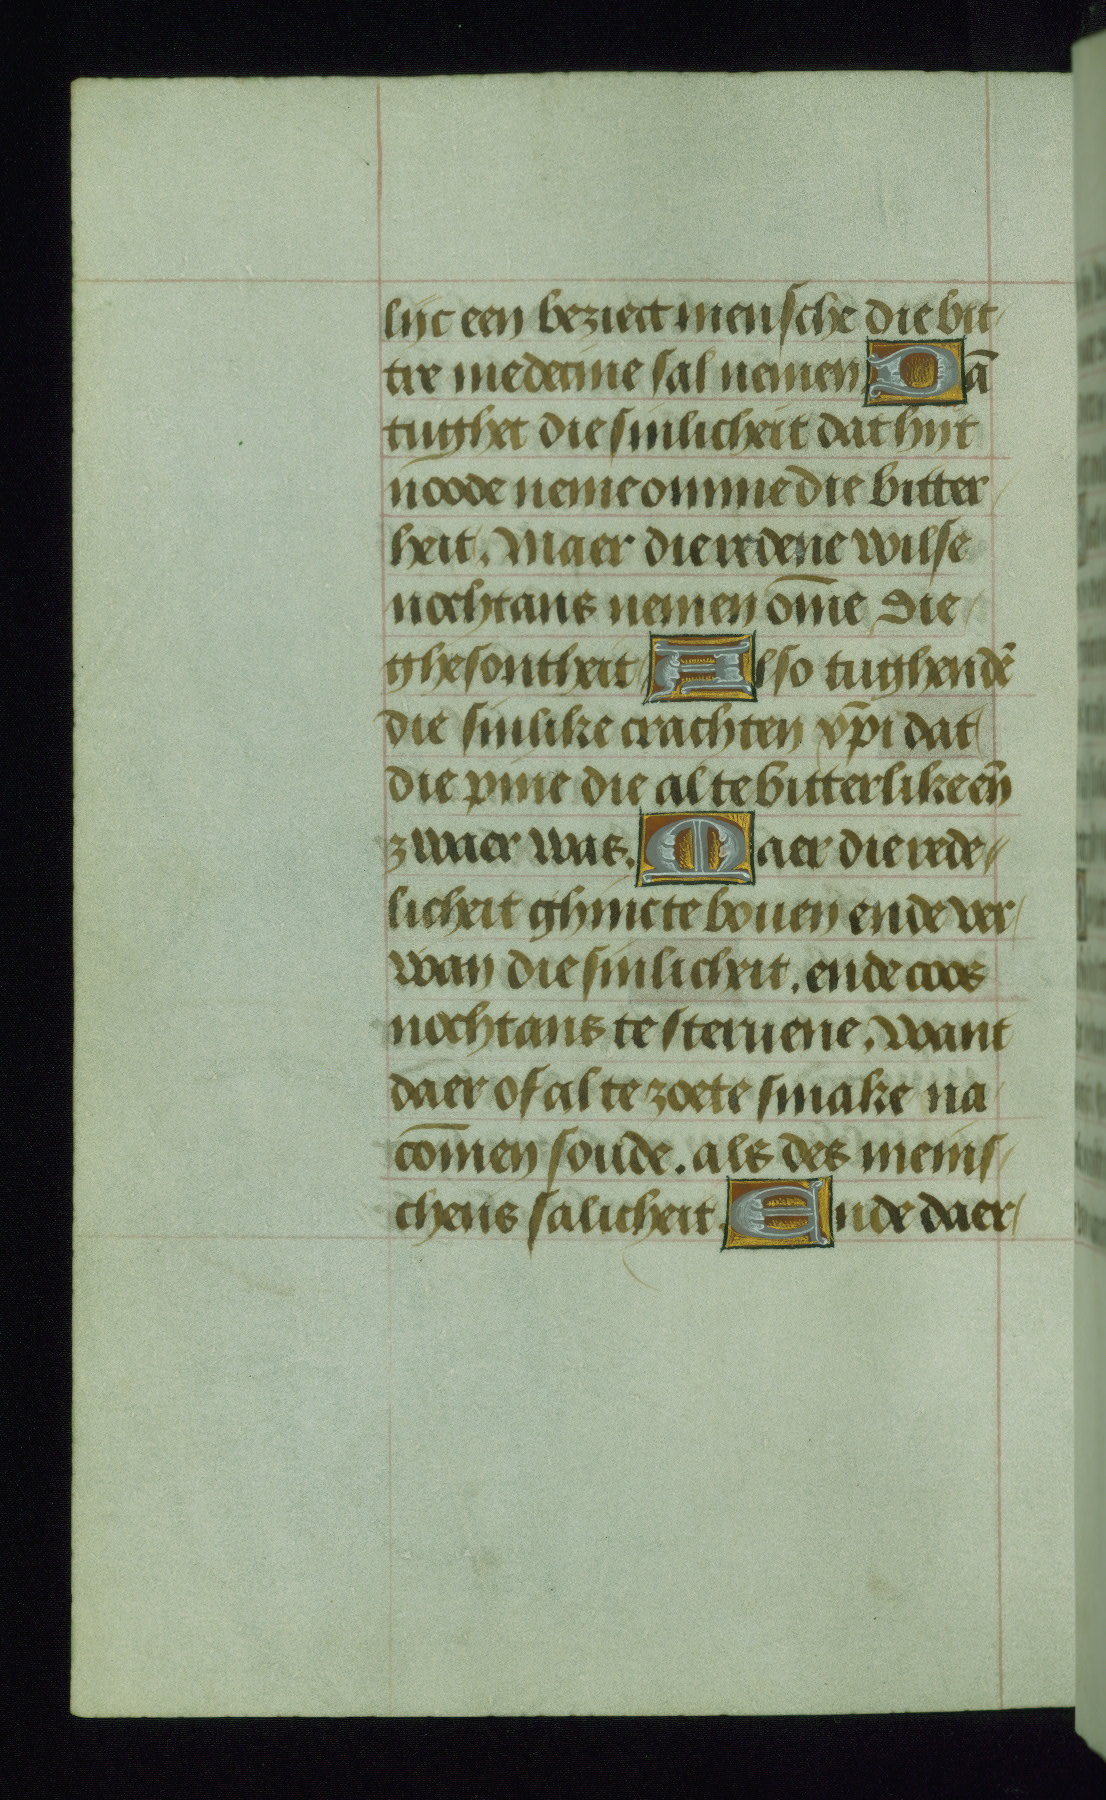 lijc een beziect mensche die bit
tre medecine sal nemen Dā
tughet die sinlicheit dat hijt
noode neme omme die bitter
heit. Maer die redene wilse
nochtans nemen om̄e die
ghesontheit Also tughendē
die sinlike crachten xp̄i dat
die pine die al te bitterlike en̄
zwaer was. Maer die rede
licheit ghinc te bouen ende ver
wan die sinlicheit. ende coos
nochtans te steruene. Want
daer of al te zoete smake na
com̄en soude. als des meins
chens salicheit. Ende daer